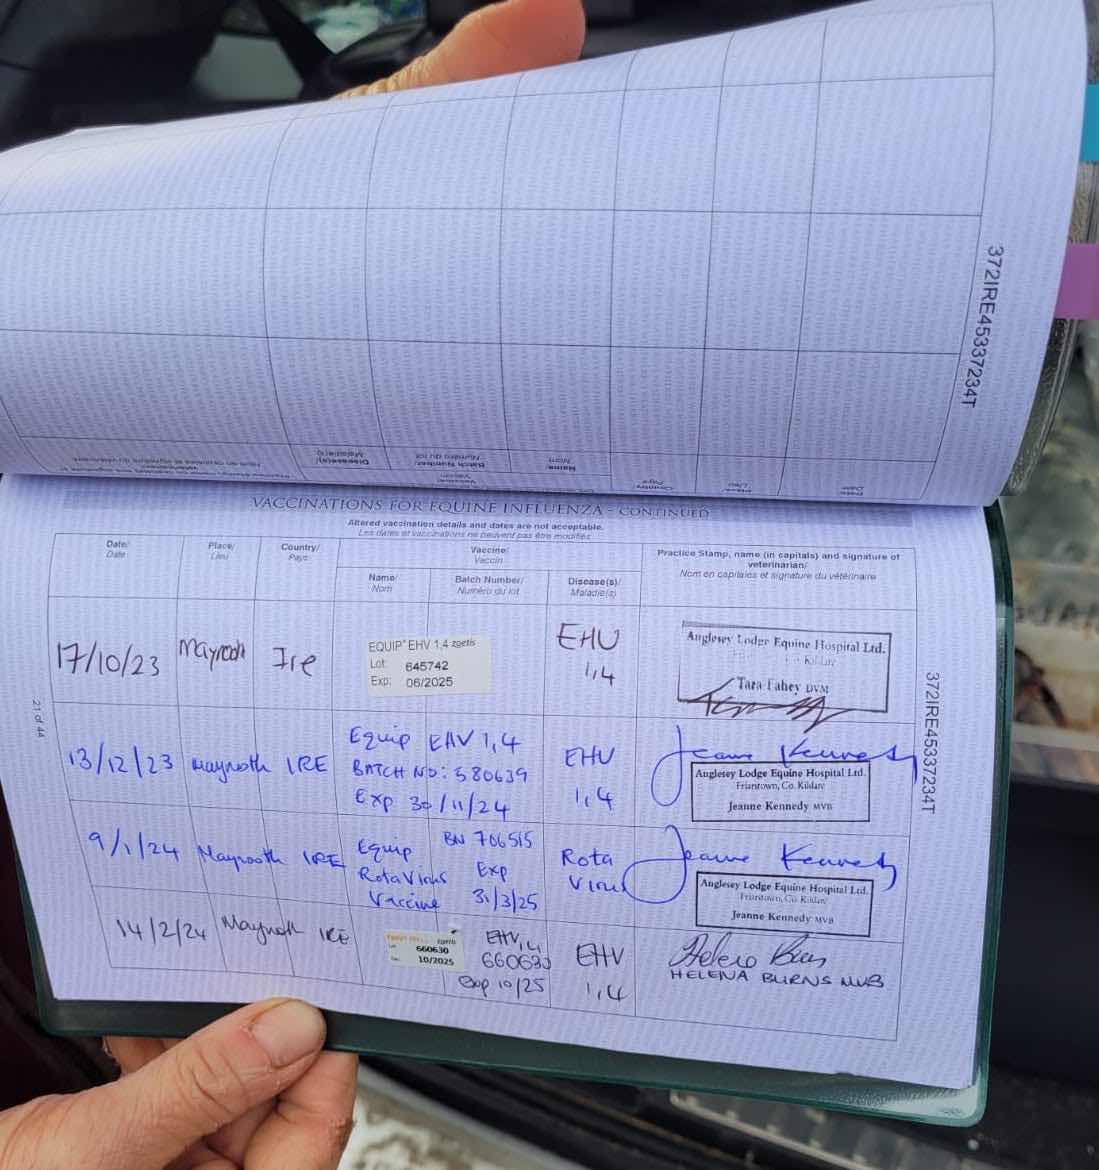 372IRE45337234T
Disease(s)/
Maladie(s)
Batch Number/
Numéro du lot
Name
Nom
Country
Pays
Place/
Lieu
Date/
Date
VACCINATIONS FOR EQUINE INFLUENZA - CONTINUED
Altered vaccination details and dates are not acceptable.
Les dates et vaccinations ne peuvent pas être modifiés
Date/
Date
Place/
Lieu
Country/
Pays
Vaccine/
Vaccin
Name/
Nom
Batch Number/
Numéro du lot
Disease(s)/
Maladie(s)
Practice Stamp, name (in capitals) and signature of
veterinarian/
Nom en capitales et signature du vétérinaire
17/10/23 Maynooth Ire
EQUIP EHV 1,4 zoetis
Lot: 645742
Exp: 06/2025
EHV
1,4
Anglesey Lodge Equine Hospital Ltd.
Kildare
Tara Fahey DVM
13/12/23 Maynooth IRE
Equip EHV 1,4
BATCH NO: 580639
Exp 30/11/24
EHV
1,4
Jeanne Kennedy
Anglesey Lodge Equine Hospital Ltd.
Friarstown, Co. Kildare
Jeanne Kennedy MVB
9/1/24 Maynooth IRE
Equip
RotaVirus
Vaccine
BN 706515
Exp
31/3/25
Rota
Virus
Jeanne Kennedy
Anglesey Lodge Equine Hospital Ltd.
Friarstown, Co. Kildare
Jeanne Kennedy MVB
14/2/24 Maynooth IRE
zoetis
660630
10/2025
EHV 1,4
660630
Exp 10/25
EHV
1,4
Helena Burns
HELENA BURNS MVB
21 of 44
372IRE45337234T